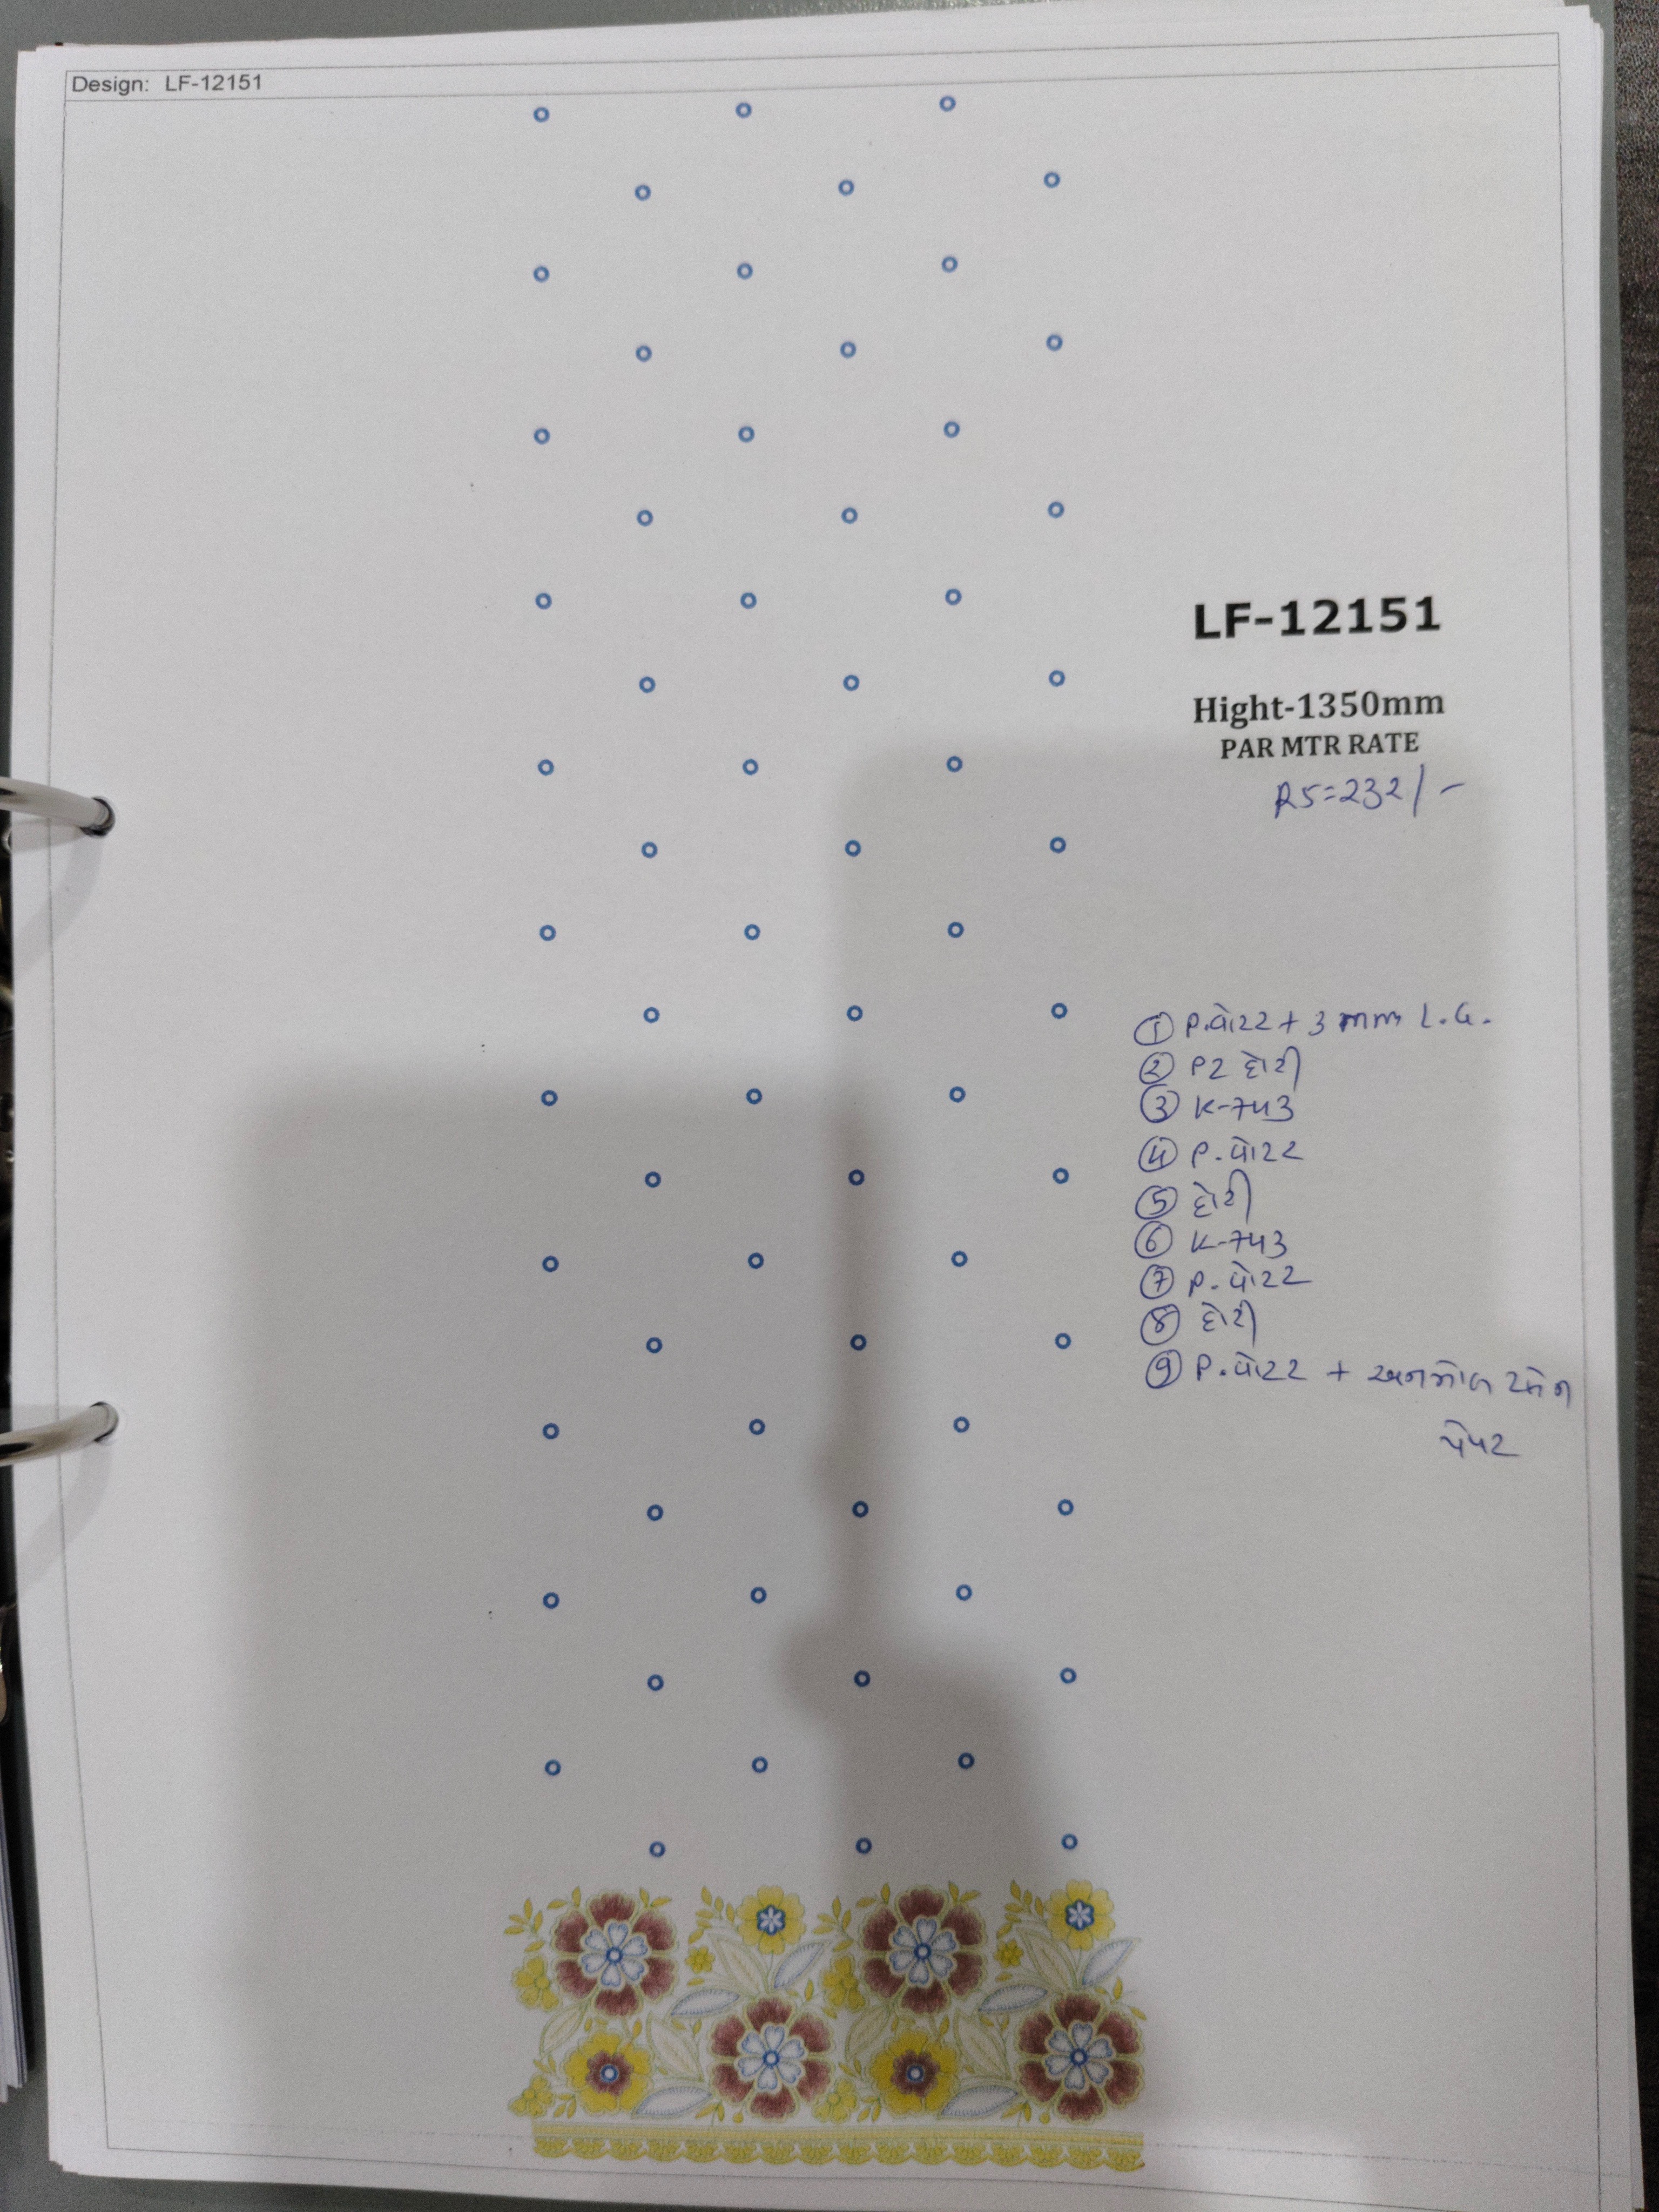 Design: LF-12151
LF-12151
Hight-1350mm
PAR MTR RATE
RS=232/-
① P.વોટર + 3 mm L.G.
② P2 દોરી
③ K-743
④ P.વોટર
⑤ દોરી
⑥ K-743
⑦ P.વોટર
⑧ દોરી
⑨ P.વોટર +